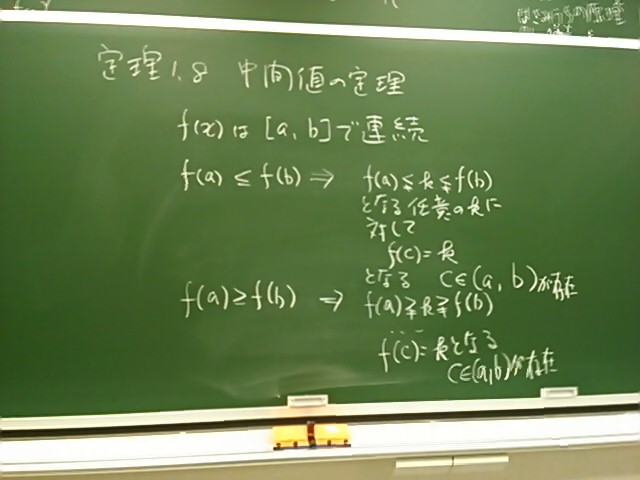 はさみうちの原理
定理1.8 中間値の定理
f(x)は[a,b]で連続
f(a) ≤ f(b) ⇒ f(a) ≨ k ≨ f(b)
となる任意のkに
対して
f(c)=k
となる c∈(a,b)が存在
f(a) ≥ f(b) ⇒ f(a) ≩ k ≩ f(b)
...
f(c)=kとなる
c∈(a,b)が存在